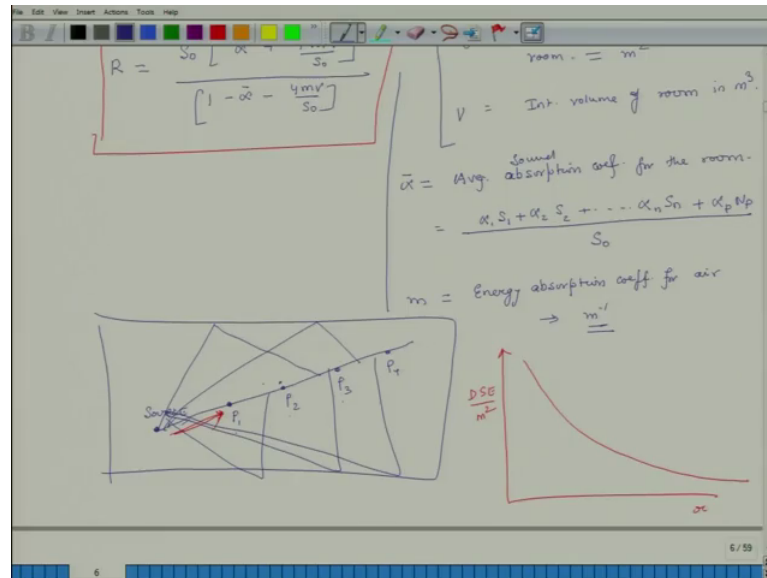 File Edit View Insert Actions Tools Help
B I
R = S₀ [ ᾱ + 4mV/S₀ ] / [ 1 - ᾱ - 4mV/S₀ ]
room. = m²
V = Int. volume of room in m³.
ᾱ = Avg. sound absorption coef. for the room.
= α₁S₁ + α₂S₂ + ---- αₙSₙ + αₚNₚ / S₀
m = Energy absorption coeff for air
→ m⁻¹
SOURCE P₁ P₂ P₃ P₄
DSE/m²
x
6/59
6